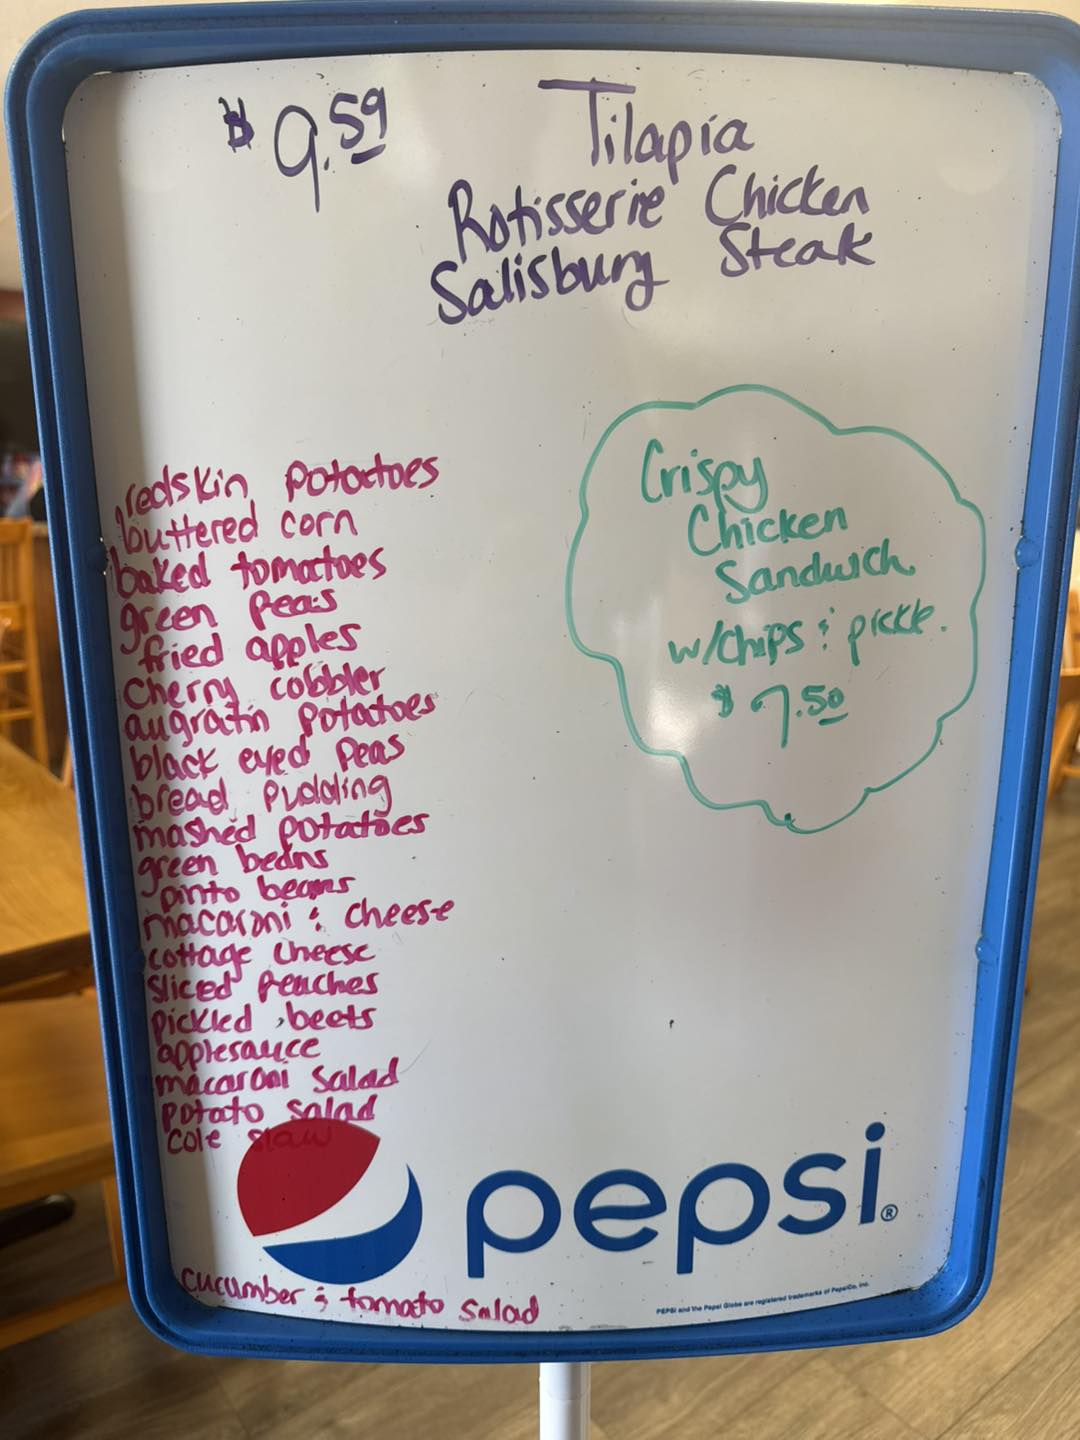 $ 9.59
Tilapia
Rotisserie Chicken
Salisburg Steak
Crispy
Chicken
Sandwich
w/chips & pickle.
$ 7.50
redskin potatoes
buttered corn
baked tomatoes
green peas
fried apples
cherry cobbler
augratin potatoes
black eyed peas
bread pudding
mashed potatoes
green beans
pinto beans
macaroni & cheese
cottage cheese
sliced peaches
pickled beets
applesauce
macaroni salad
potato salad
cole slaw
pepsi®
cucumber & tomato salad
PEPSI and the Pepsi Globe are registered trademarks of PepsiCo, Inc.